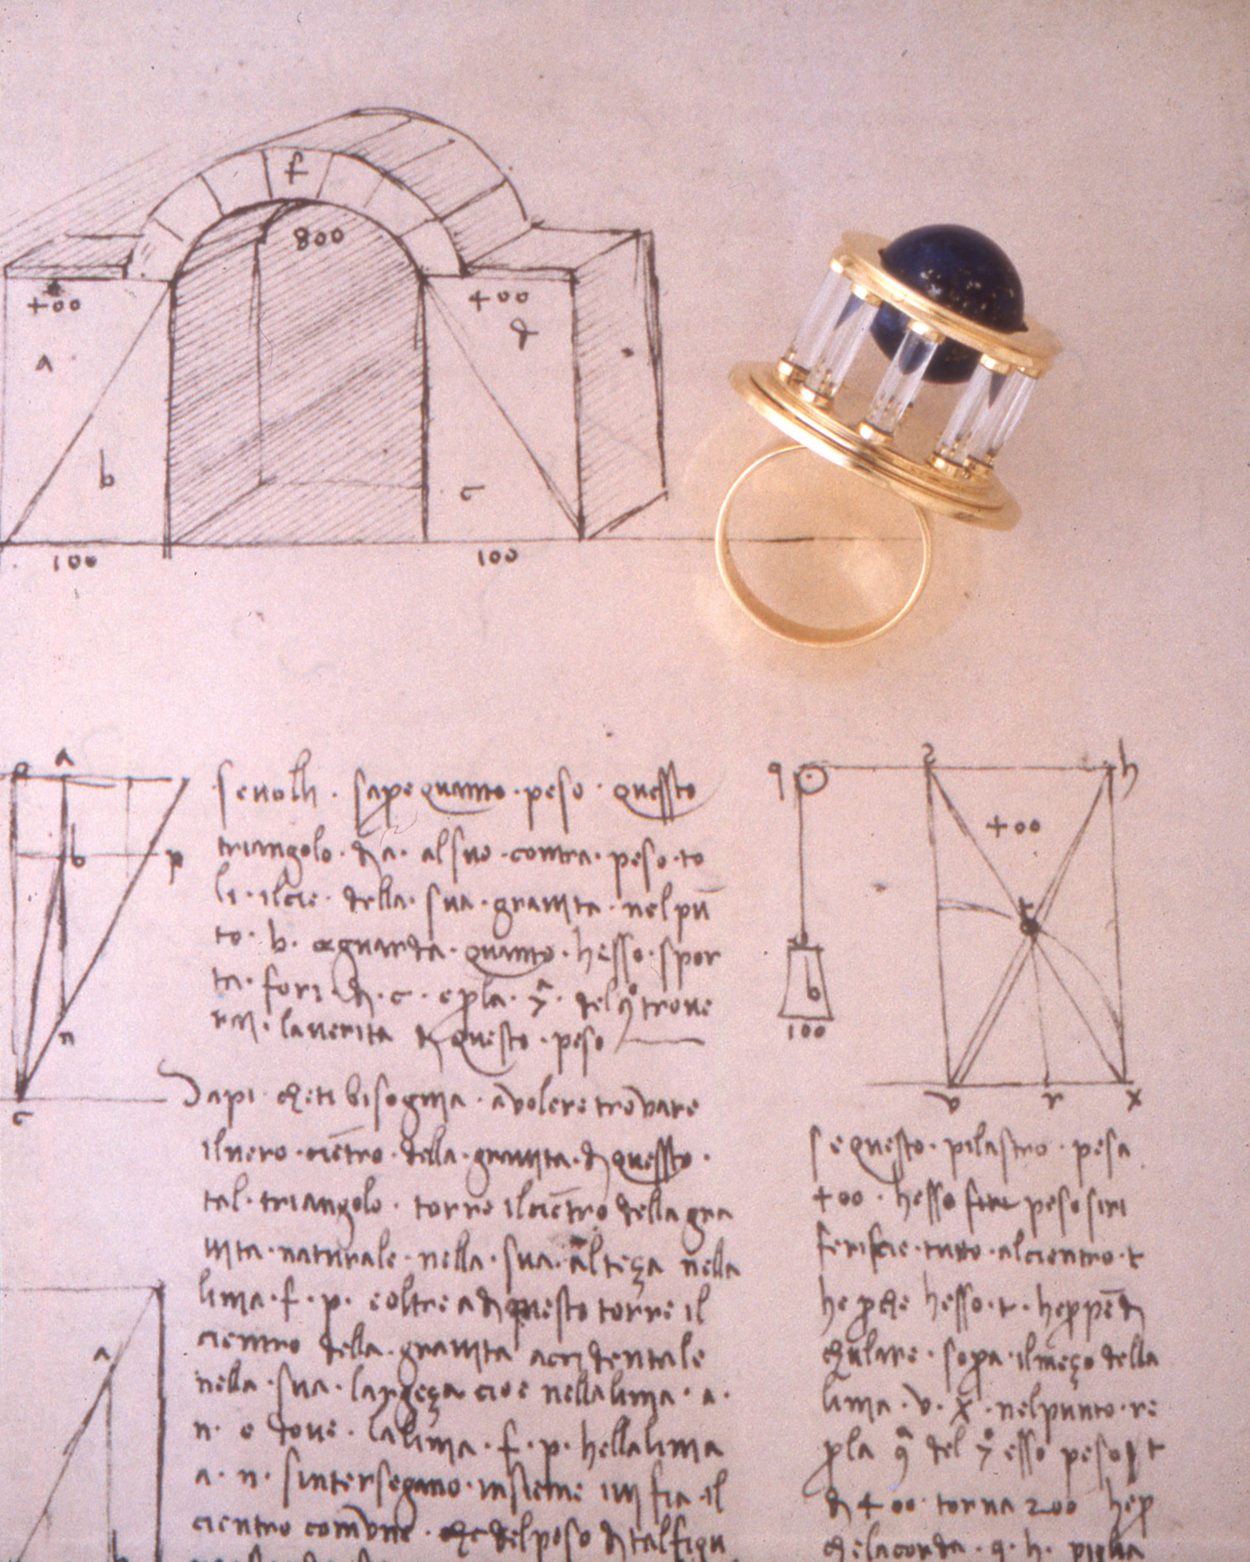 f
800
400
400
a
d
b
c
100
100
a
b
p
n
c
se volli . sape quanto . peso . questo
triangolo . da . al suo . contra . peso . to
li . il cie . della . sua . gravita . nel pū
to . b . e guarda . quanto . hesso . spor
ta . fori . di . c . e p la . 7ª . del 9° trove
rai . la verita di questo . peso
Sapi . che ti bisogna . a volere trovare
il vero . ciētro . della . gravita . di questo .
tal . triangolo . torre il ciētro della gra
vita . naturale . nella . sua . alteça nella
linia . f . p . e oltre a di questo torre il
cientro della . gravita acidentale
nella . sua . largeça cioe nella linia . a .
n . e dove . la linia . f . p . hella linia
a . n . sintersegano . insieme ivi fia . il
cientro comune . del peso di tal figu
a
b
q
h
400
t
b
100
v
r
x
se questo . pilastro . pesa
400 . hesso peso si ri
feriscie . tutto . al cientro . t
he p che hesso . t . he p pēdi
chulare . sopa . il meço della
linia . v . x . nel punto . re
p la 9 del 7 esso peso t
di 400 . torna 200 he p
che la corda . q . h . piglia